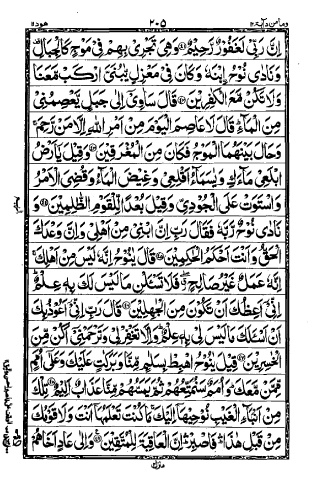 وما من دآبة ١٢ ٢٠٥ هود ١١
اِنَّ رَبِّيْ لَغَفُوْرٌ رَّحِيْمٌ ۝ وَهِيَ تَجْرِيْ بِهِمْ فِيْ مَوْجٍ كَالْجِبَالِ
وَنَادٰى نُوْحُ ۨابْنَهٗ وَكَانَ فِيْ مَعْزِلٍ يّٰبُنَيَّ ارْكَبْ مَّعَنَا
وَلَا تَكُنْ مَّعَ الْكٰفِرِيْنَ ۝ قَالَ سَاٰوِيْۤ اِلٰى جَبَلٍ يَّعْصِمُنِيْ
مِنَ الْمَآءِ ؕ قَالَ لَا عَاصِمَ الْيَوْمَ مِنْ اَمْرِ اللّٰهِ اِلَّا مَنْ رَّحِمَ ۚ
وَحَالَ بَيْنَهُمَا الْمَوْجُ فَكَانَ مِنَ الْمُغْرَقِيْنَ ۝ وَقِيْلَ يٰۤاَرْضُ
ابْلَعِيْ مَآءَكِ وَيٰسَمَآءُ اَقْلِعِيْ وَغِيْضَ الْمَآءُ وَقُضِيَ الْاَمْرُ
وَاسْتَوَتْ عَلَى الْجُوْدِيِّ وَقِيْلَ بُعْدًا لِّلْقَوْمِ الظّٰلِمِيْنَ ۝ وَ
نَادٰى نُوْحٌ رَّبَّهٗ فَقَالَ رَبِّ اِنَّ ابْنِيْ مِنْ اَهْلِيْ وَاِنَّ وَعْدَكَ
الْحَقُّ وَاَنْتَ اَحْكَمُ الْحٰكِمِيْنَ ۝ قَالَ يٰنُوْحُ اِنَّهٗ لَيْسَ مِنْ اَهْلِكَ ۚ
اِنَّهٗ عَمَلٌ غَيْرُ صَالِحٍ ۖ فَلَا تَسْـَٔلْنِ مَا لَيْسَ لَكَ بِهٖ عِلْمٌ ؕ
اِنِّيْۤ اَعِظُكَ اَنْ تَكُوْنَ مِنَ الْجٰهِلِيْنَ ۝ قَالَ رَبِّ اِنِّيْۤ اَعُوْذُ بِكَ
اَنْ اَسْـَٔلَكَ مَا لَيْسَ لِيْ بِهٖ عِلْمٌ ؕ وَاِلَّا تَغْفِرْ لِيْ وَتَرْحَمْنِيْۤ اَكُنْ مِّنَ
الْخٰسِرِيْنَ ۝ قِيْلَ يٰنُوْحُ اهْبِطْ بِسَلٰمٍ مِّنَّا وَبَرَكٰتٍ عَلَيْكَ وَعَلٰۤى اُمَمٍ
مِّمَّنْ مَّعَكَ ؕ وَاُمَمٌ سَنُمَتِّعُهُمْ ثُمَّ يَمَسُّهُمْ مِّنَّا عَذَابٌ اَلِيْمٌ ۝ تِلْكَ
مِنْ اَنْۢبَآءِ الْغَيْبِ نُوْحِيْهَاۤ اِلَيْكَ ۚ مَا كُنْتَ تَعْلَمُهَاۤ اَنْتَ وَلَا قَوْمُكَ
مِنْ قَبْلِ هٰذَا ۛؕ فَاصْبِرْ ۛؕ اِنَّ الْعَاقِبَةَ لِلْمُتَّقِيْنَ ۝ وَاِلٰى عَادٍ اَخَاهُمْ
منزل